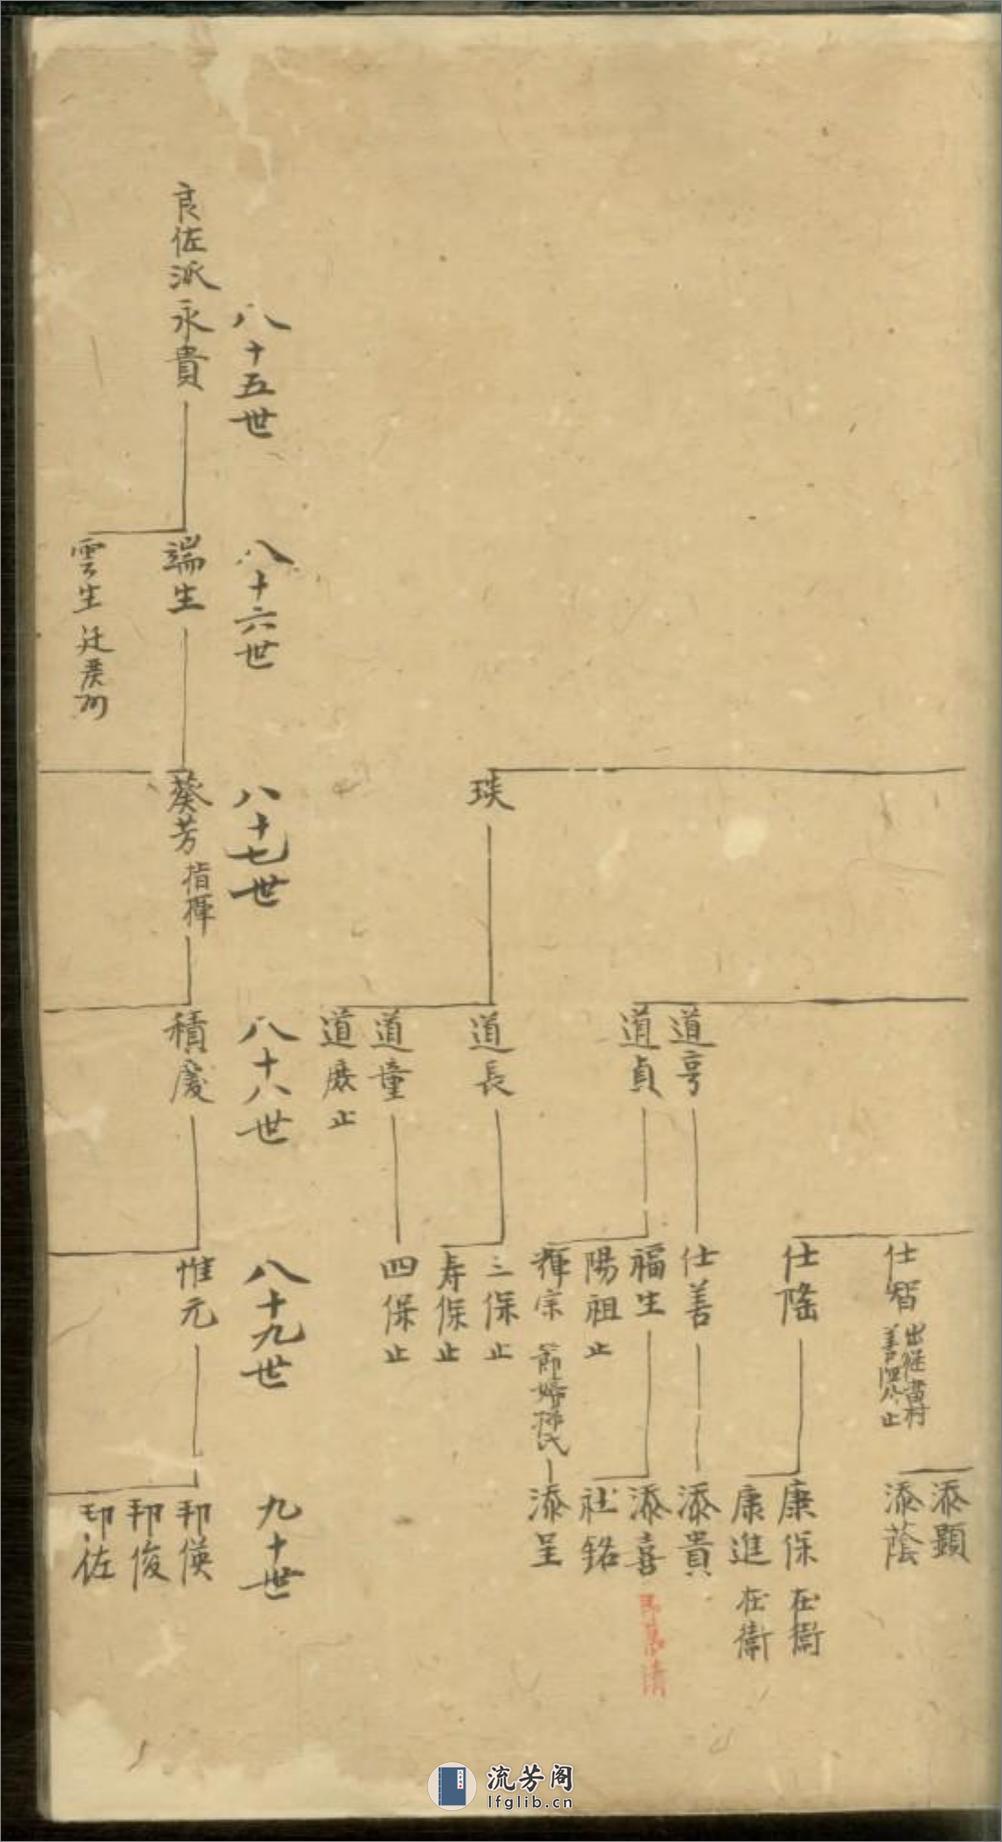 添顕
仕智
出繼畵村
添蔭
仕隆
康保 在衛
康進 在衛
道亨
仕善
添貴
道貞
福生
添喜
清
陽祖止
社銘
輝宗 節婦孫氏
添呈
琰
道長
三保止
寿保止
道童
四保止
道㢘止
八十五世
八十六世
八十七世
八十八世
八十九世
九十世
良佐派永貴
端生
葵芳 指揮
積慶
惟元
邦偀
邦俊
邦佐
雲生 迁廣州
流芳阁
lfglib.cn